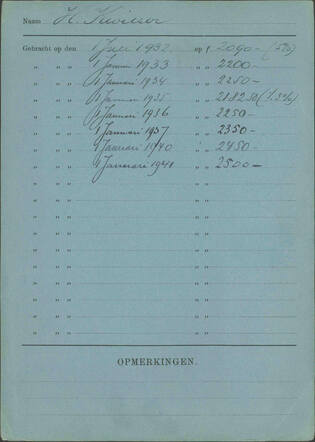 Naam H.
Gebracht op den 1 Juli 1932 op f 2090.- (5%)
" " " 1 Januari 1933 " " 2200-
" " " 1 Januari 1934 " " 2250-
" " " 1 Januari 1935 " " 2182.50 (1.3%)
" " " 1 Januari 1936 " " 2250-
" " " 1 Januari 1937 " " 2350-
" " " 1 Januari 1940 " " 2450-
" " " 1 Januari 1941 " " 2500-
" " " " "
" " " " "
" " " " "
" " " " "
" " " " "
" " " " "
" " " " "
" " " " "
" " " " "
" " " " "
OPMERKINGEN.